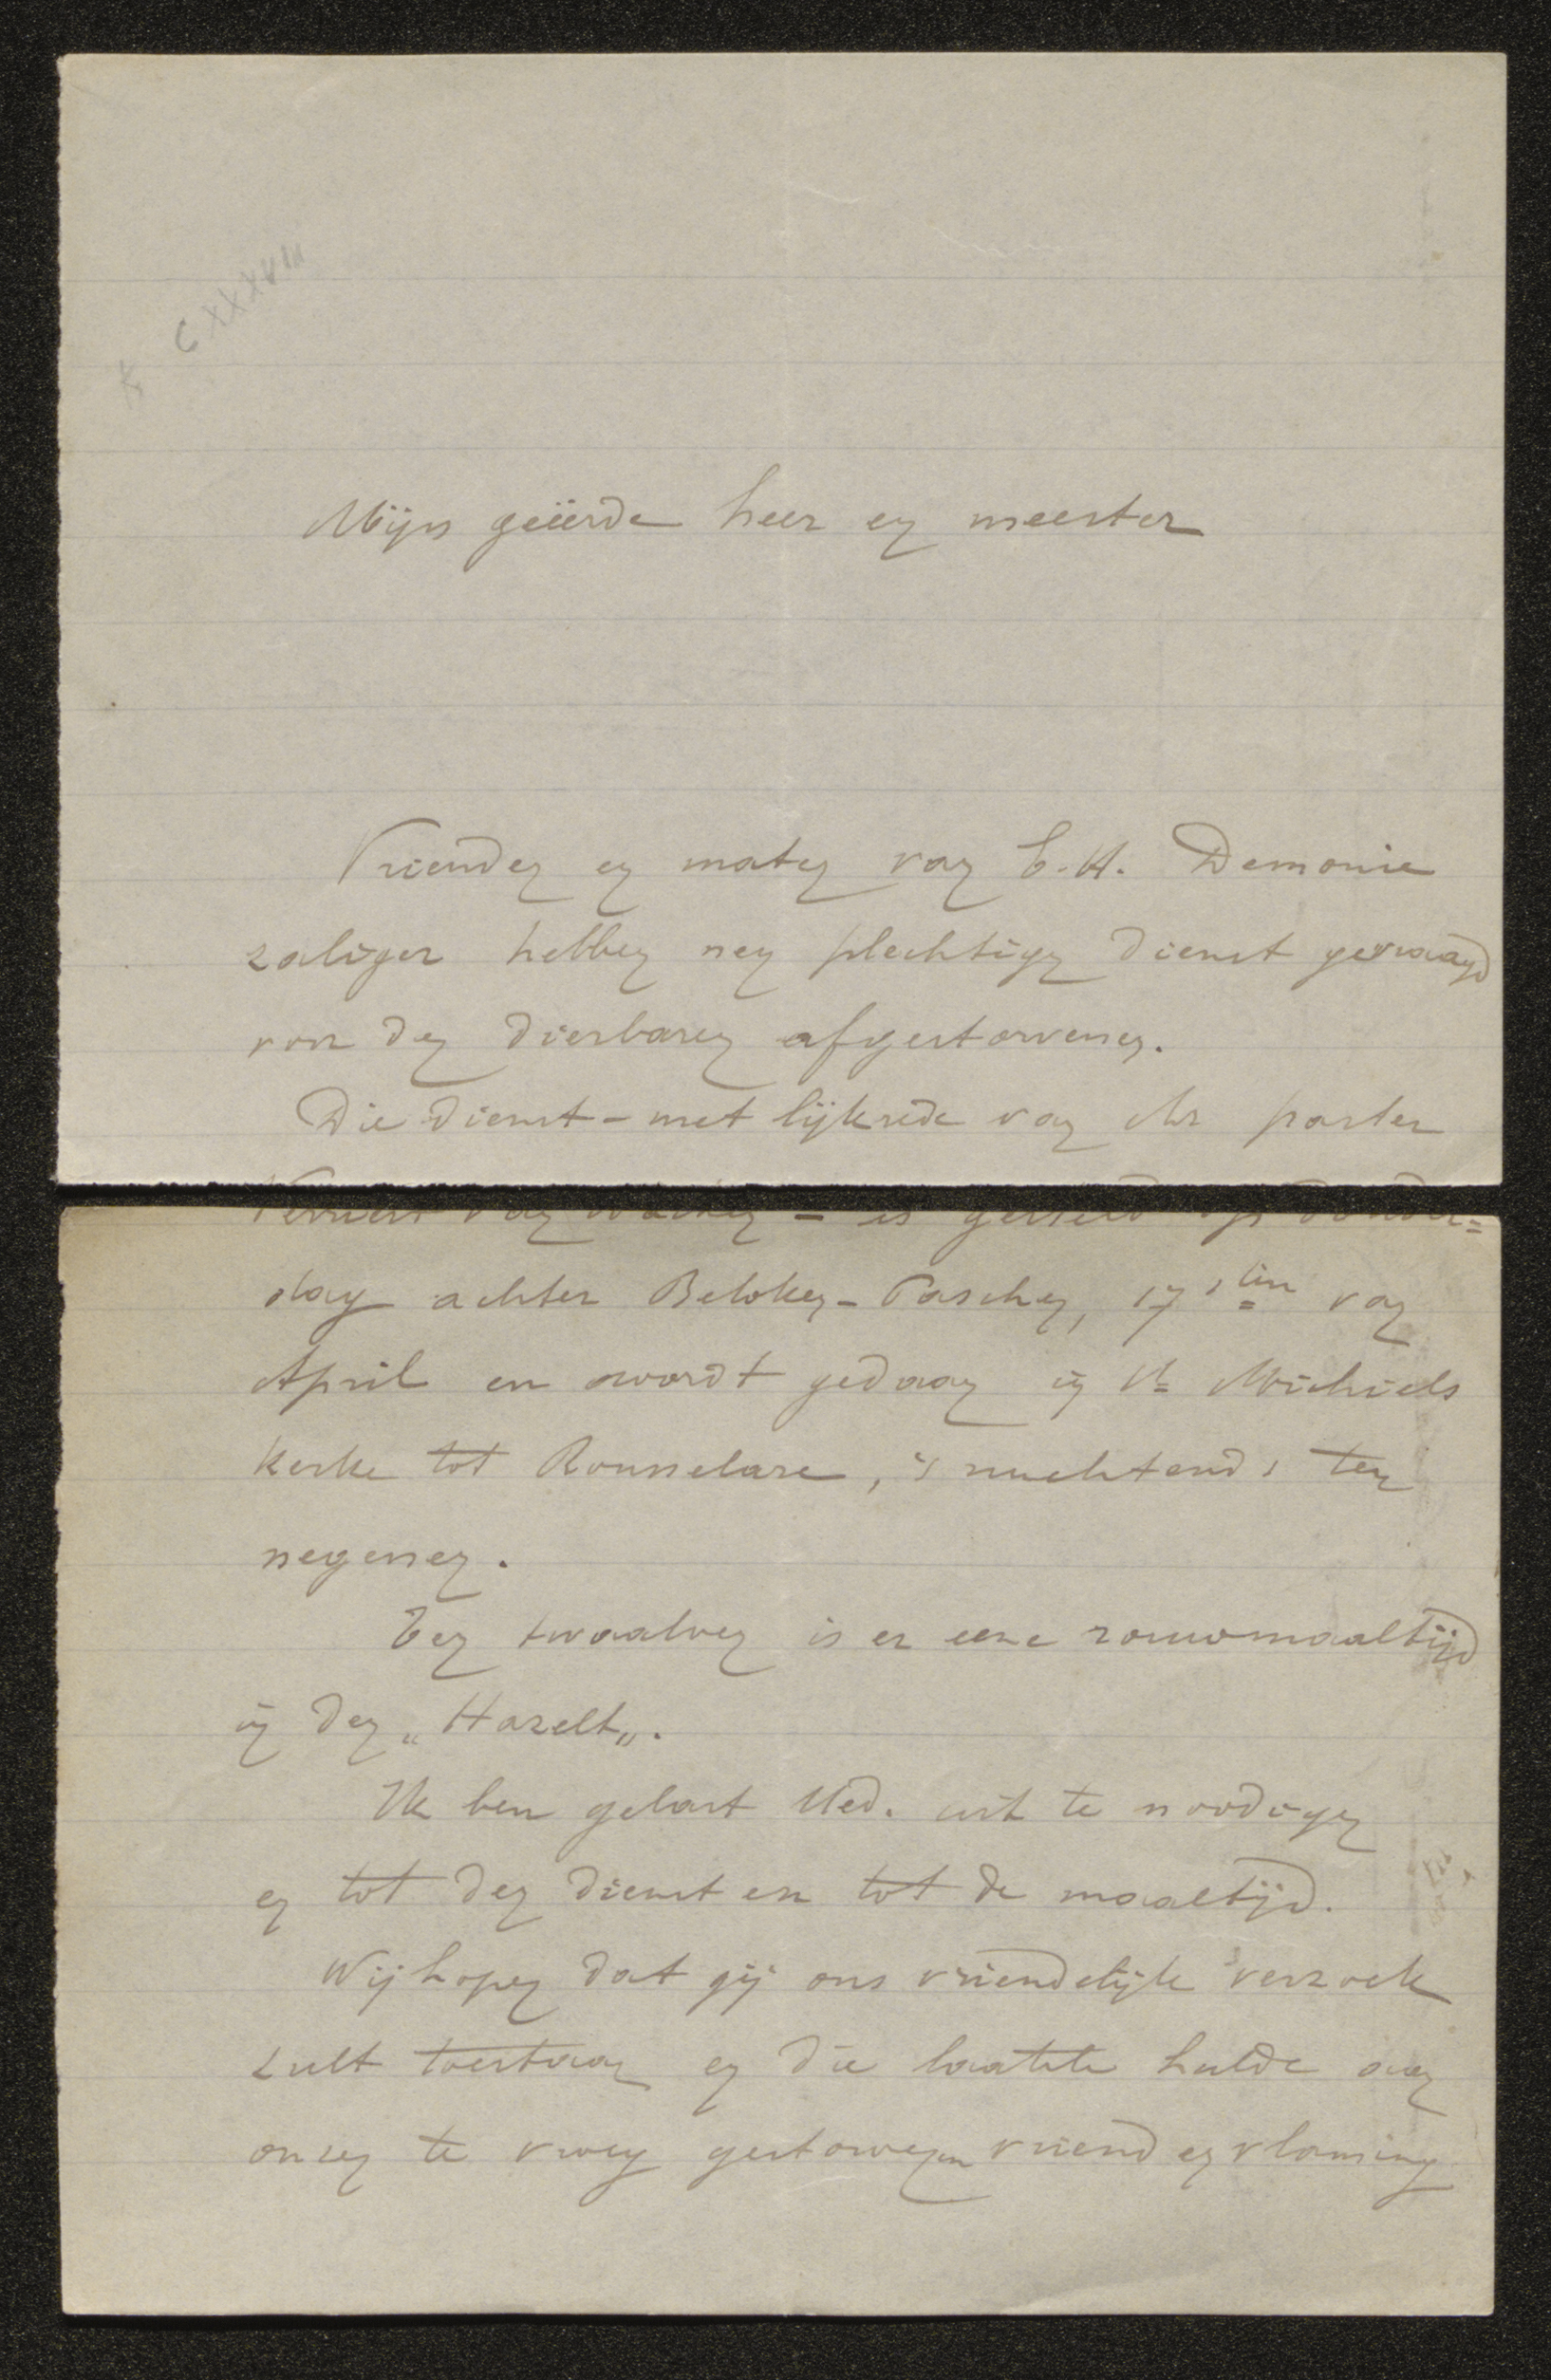 CXXXVIII
Mijn geëerde heer en meester
Vrienden en maten van E.H. Demonie
zaliger hebben nen plechtigen dienst gevraagd
voor den dierbaren afgestorvenen.
Die dienst - met lijkrede van Mr paster
van - is gesteld op donder=
dag achter Beloken-Paschen, 17sten van
April en wordt gedaan in St Michiels
kerke tot Rousselare, 's nuchtends ten
negenen.
Ten twaalven is er eene rouwmaaltijd
in den „Hazelt„.
Ik ben gelast Ued. uit te noodigen
en tot den dienst en tot de maaltijd.
Wij hopen dat gij ons vriendelijk verzoek
zult toestaan en die laatste hulde aan
onzen te vroeg gestorvenen vriend en vlaming